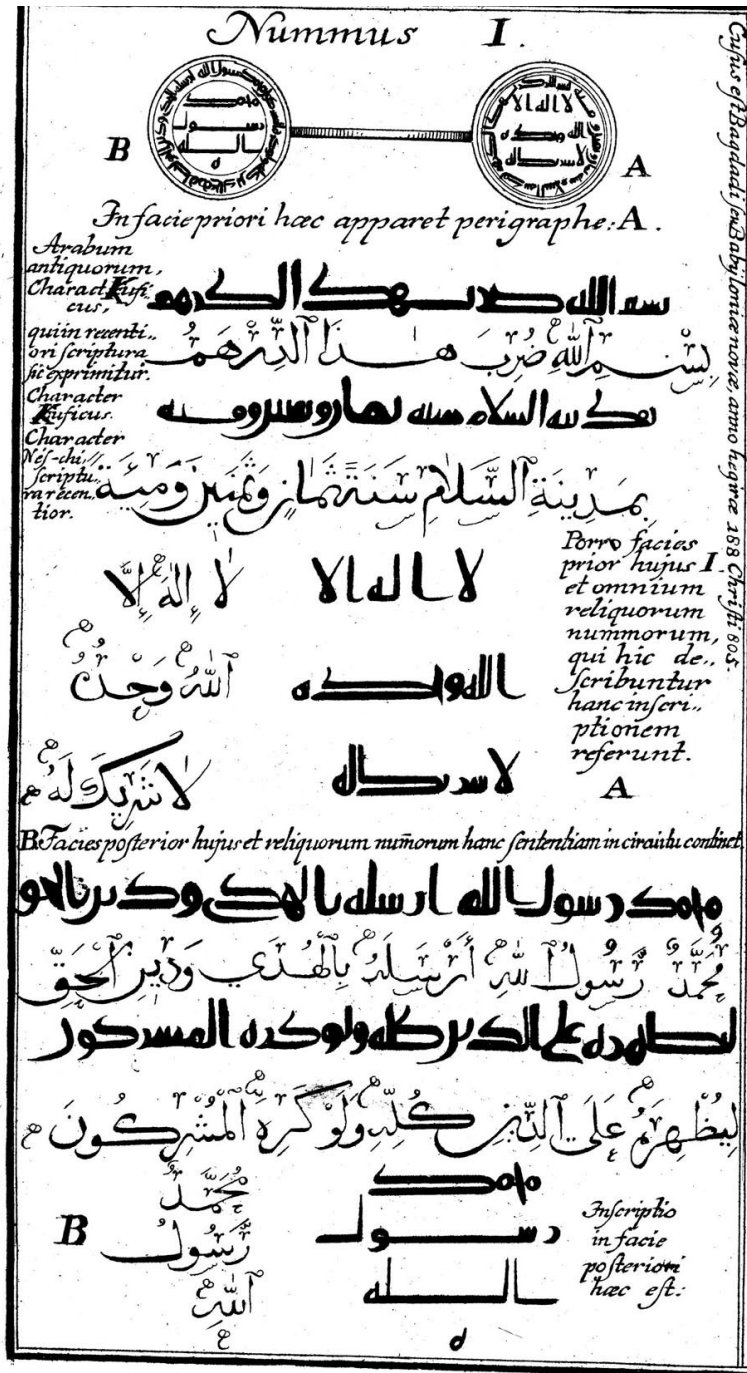 Nummus I.
B
A
In facie priori hæc apparet perigraphe: A.
Arabum
antiquorum,
Charact. Kufi-
cus,
qui in recenti-
ori scriptura
sic exprimitur.
Character
Kuficus.
Character
Nes-chi,
scriptu-
ra recen-
tior.
بسم الله ضرب هذا الدرهم
بِسْمِ ٱللّٰهِ ضُرِبَ هٰذَا ٱلدِّرْهَمُ
بمدينه السلام سنه ثمان وثمنين ومئه
بِمَدِينَةِ ٱلسَّلَامِ سَنَةَ ثَمَانٍ وَثَمَنِينَ وَمِئَةٍ
لا اله الا
لَا إِلٰهَ إِلَّا
الله وحده
ٱللّٰهُ وَحْدَهُ
لا شريك له
لَا شَرِيكَ لَهُ
Porro facies
prior hujus I.
et omnium
reliquorum
nummorum,
qui hic de-
scribuntur
hanc inscri-
ptionem
referunt.
A
Cusus est Bagdadi seu Babyloniæ novæ anno hegiræ 188 Christi 805.
B. Facies posterior hujus et reliquorum num̄orum hanc sententiam in circuitu continet
محمد رسول الله ارسله بالهدى ودين الحق
مُحَمَّدٌ رَّسُولُ ٱللّٰهِ أَرْسَلَهُ بِٱلْهُدَي وَدِينِ ٱلْحَقِّ
ليظهره على الدين كله ولو كره المشركون
لِيُظْهِرَهُ عَلَي ٱلدِّينِ كُلِّهِ وَلَوْ كَرِهَ ٱلْمُشْرِكُونَ
محمد
رسول
الله
ه
مُحَمَّدٌ
رَّسُولُ
ٱللّٰهِ
B
Inscriptio
in facie
posteriori
hæc est: